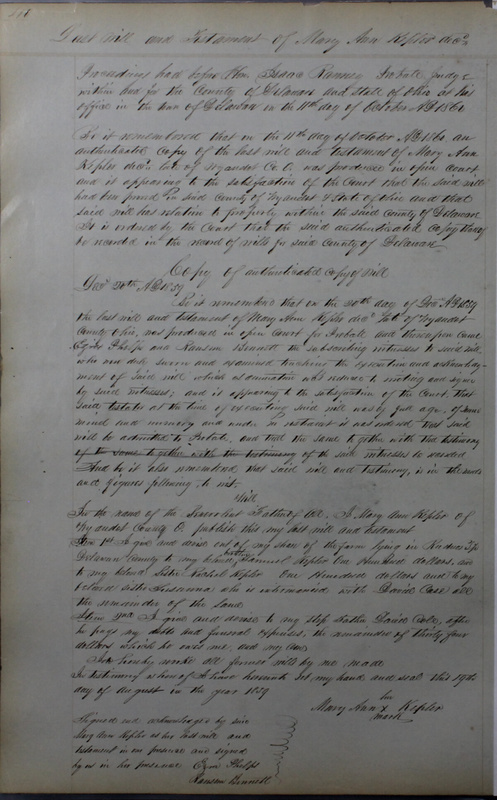 Last Will and Testament of Mary Ann Kepler decd
Proceedings had before Hon. Isaac Ranney Probate Judge
within and for the County of Delaware and State of Ohio at his
office in the town of Delaware on the 11th day of October AD 1860
Be it remembered that on the 11th day of October AD 1860 an
authenticated copy of the last will and testament of Mary Ann
Kepler decd late of Wyandot Co O. was produced in open court
and it appearing to the satisfaction of the Court that the said will
had been proved in said County of Wyandot & State of Ohio and that
said will has relation to property within the said County of Delaware
It is ordered by the Court that the said authenticated copy thereof
be recorded in the record of wills for said County of Delaware
Copy of authenticated copy of Will
Decr 20th AD 1859
Be it remember that on the 20th day of Decr AD 1859
the last will and testament of Mary Ann Kepler decd late of Wyandot
County Ohio, was produced in open Court for Probate and thereupon came
Phelps and Ransom Bennett the subscribing witnesses to said will
who were duly sworn and examined touching the execution and acknowledg-
ment of said will which examination was reduce to writing and signed
by said witnesses; and it appearing to the satisfaction of the Court that
said testator at the time of executing said will was of full age, of sound
mind and memory and under no restraint it was ordered that said
will be admitted to Probate, and that the same together with that testimony
of the same together with the testimony of the said witnesses be recorded
And be it also remembered that said will and testimony, is in the words
and figures following to wit.
Will
In the name of the Benevolent Father of All. I Mary Ann Kepler of
Wyandot County O. publish this my last will and testament
Item 1st I give and devise out of my share of the farm lying in Radnor Tp
Delaware County to my beloved brother Samuel Kepler One Hundred dollars, and
to my beloved Sister Rachel Kepler One Hundred dollars and to my
beloved sister who is intermarried with David Case all
the remainder of the Land
Item 2nd I give and devise to my step brother David Cole, after
he pays my debts and funeral expenses, the remainder of thirty four
dollars which he owes me, and my
I do hereby revoke all former wills by me made
In testimony whereof I have hereunto set my hand and seal this 19th
day of August in the year 1859
her
Mary Ann x Kepler
mark
Signed and acknowledged by said
Mary Ann Kepler as her last will and
testament in our presence and signed
by us in her presence
Phelps
Ransom Bennett